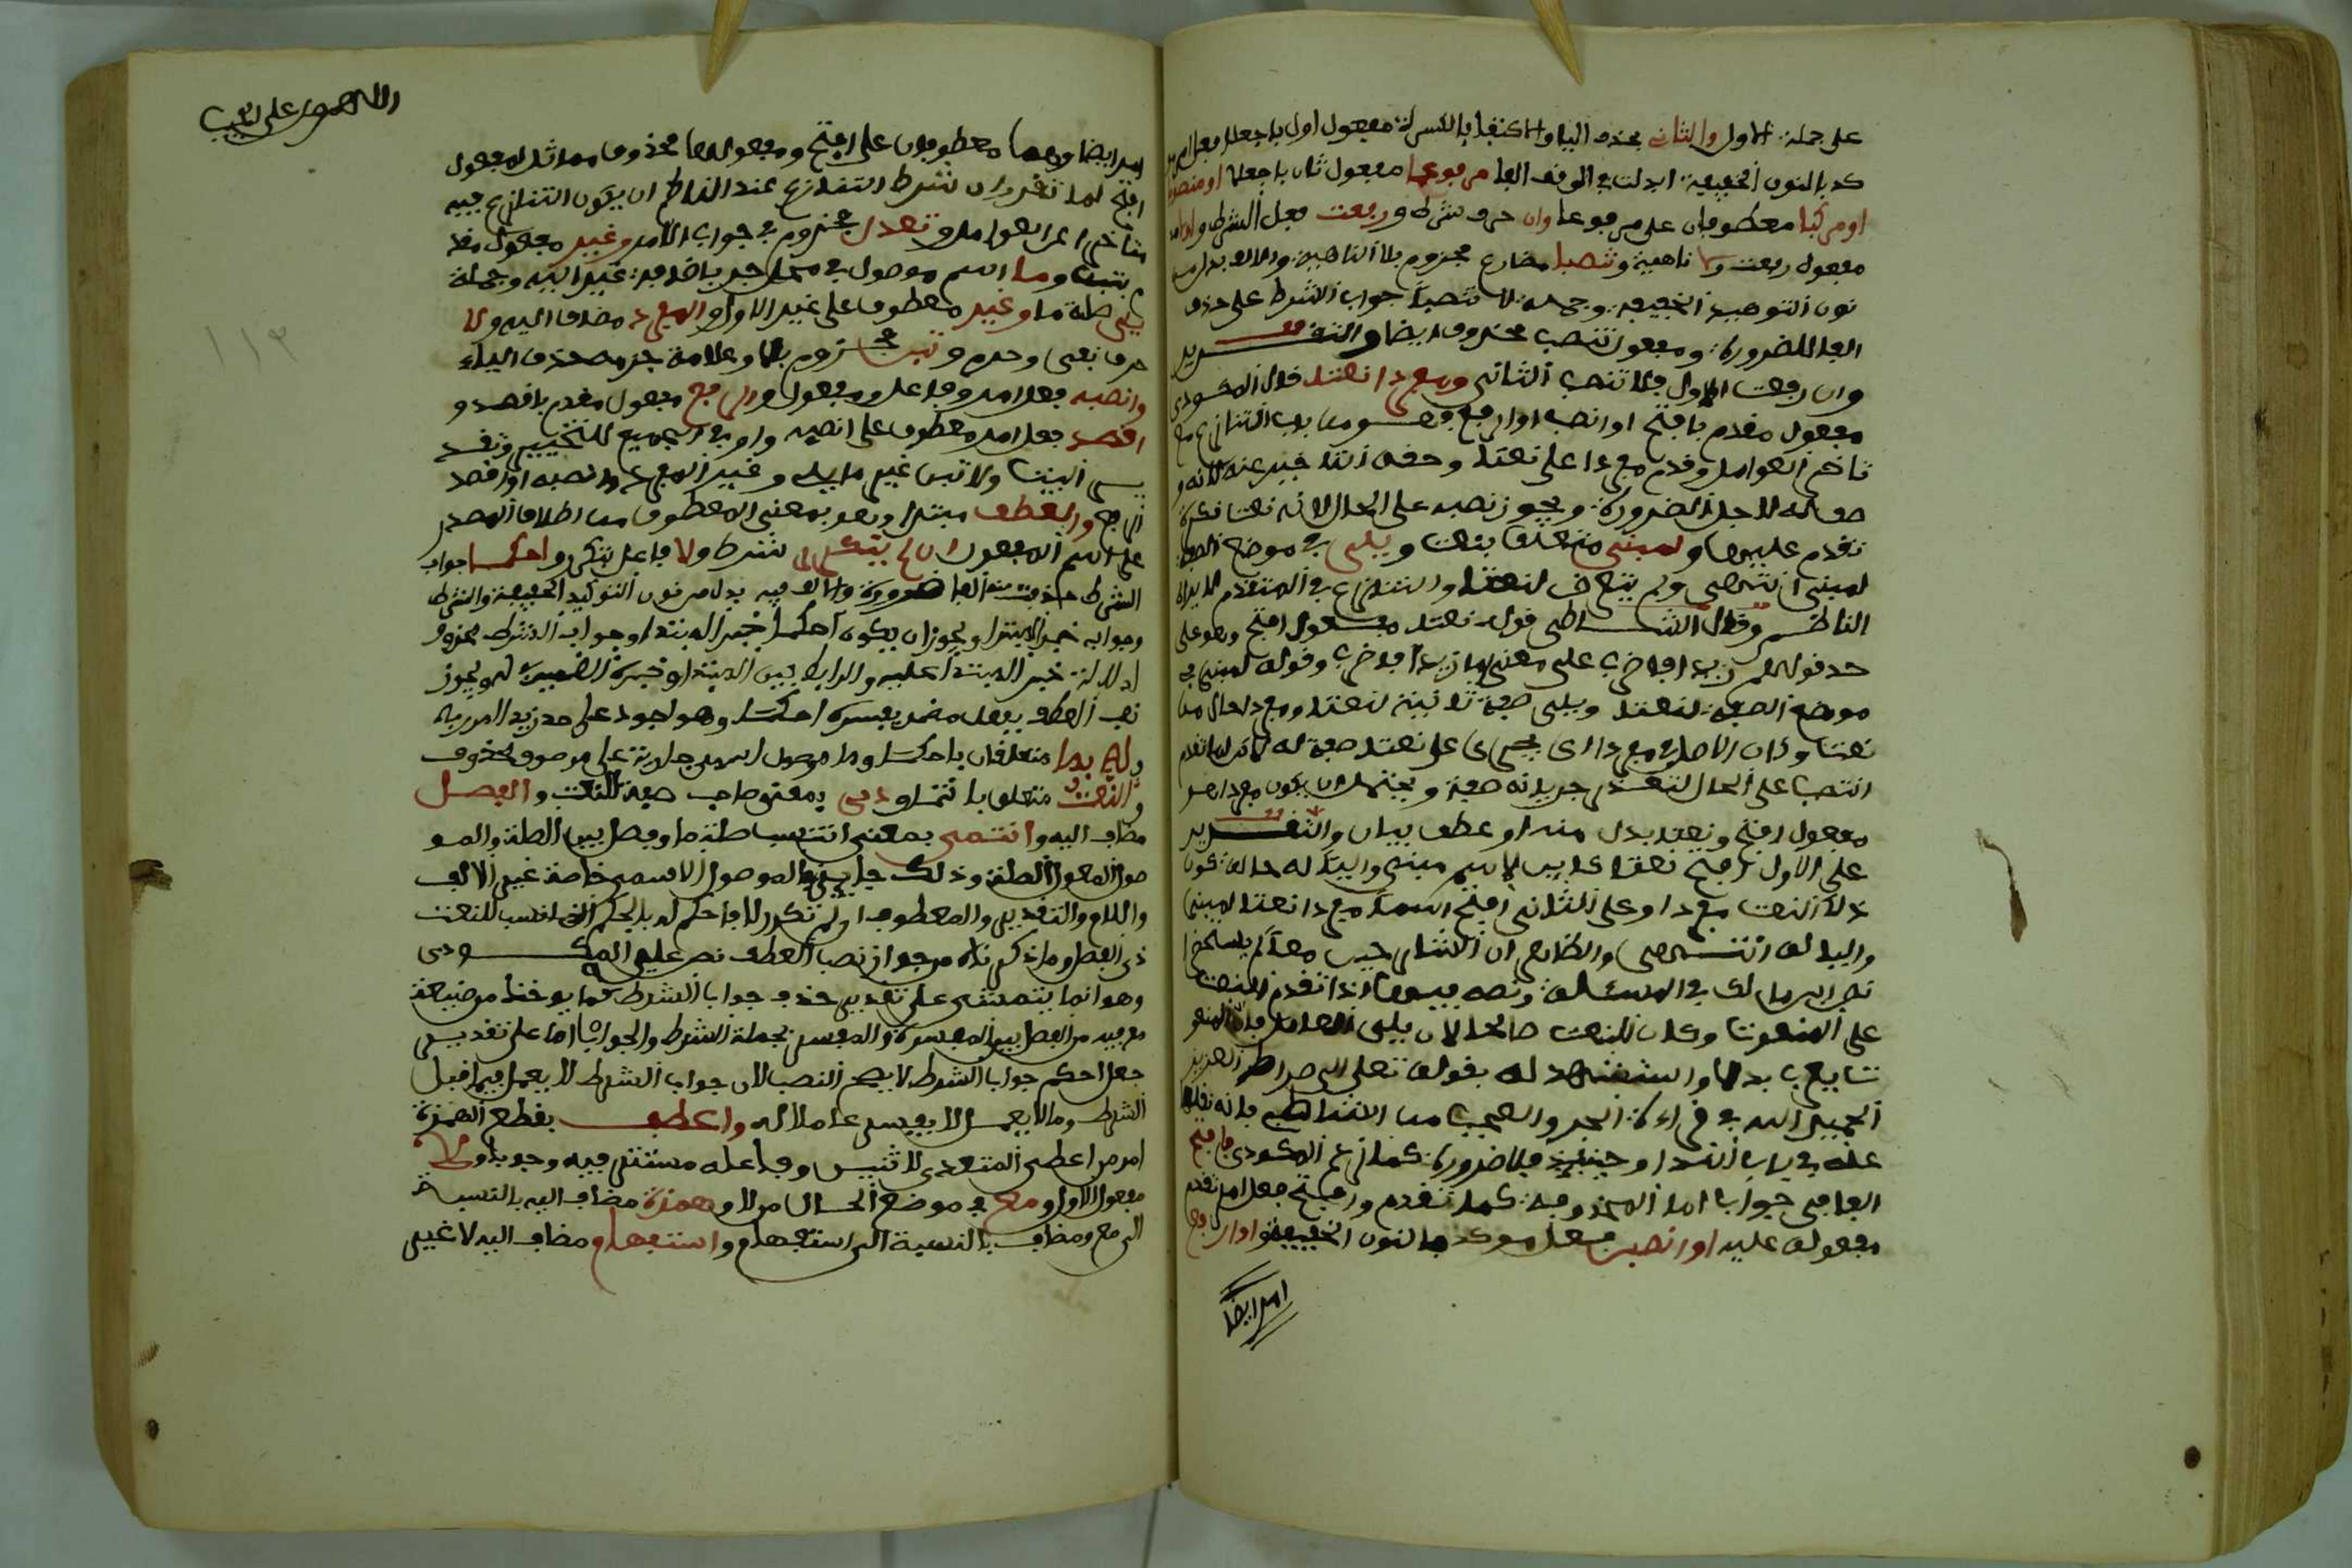 على جملة الاول والثاني بحذف الياء والاكتفاء بالكسرة مفعول اول باجعلا فعل امر
كد بالنون الخفيفة ابدلت في الوقف الفا مرفوعا مفعول ثان باجعلا او منصوبا
او مركبا معطوفان على مرفوعا وان حرف شرط ورفعت فعل الشرط واولا
مفعول رفعت ولا ناهية وتنصبا مضارع مجزوم بلا الناهية والالف بدل من
نون التوكيد الخفيفة وجملة لا تنصبا جواب الشرط على حذف
الفا للضرورة ومفعول تنصب محذوف ايضا والتقدير
وان رفعت الاول فلا تنصب الثاني ومفردا نعتا قال المكودي
مفعول مقدم بافتح او انصب او ارفع فهو من باب التنازع مع
تاخر العوامل وقدم مفردا على نعتا وحقه التاخير عنه لانه
صفة له لاجل الضرورة ويجوز نصبه على الحال لانه نعت نكرة
تقدم عليها ولمبني متعلق بنعت ويلي في موضع الصفة
لمبني انتهى ولم يتعرض لنعتا والتنازع في المتقدم لا يراه
الناظم وقال الشاطبي قوله نعتا مفعول افتح وهو على
حد قولهم زيدا فاضرب على معنى اما زيدا فاضرب وقوله لمبني في
موضع الصفة لنعتا ويلي صفة ثانية لنعتا ومفردا حال من
نعتا وكان الاصل في مفردا ان يجري على نعتا صفة له لكن لما تقدم
انتصب على الحال لتعذر جريانه صفة ويحتمل ان يكون مفردا هو
مفعول افتح ونعتا بدل منه او عطف بيان والتقدير
على الاول افتح نعتا كاين لاسم مبني واليا له حالة كون
ذلك النعت مفردا وعلى الثاني افتح اسما مفردا نعتا لمبني
واليا له انتهى والظاهر ان الشارحين معا لم يستحضرا
نص ابن مالك في المسئلة ونصه فيها اذا تقدم النعت
على المنعوت وكان النعت صالحا لان يلي العامل فان المنعو
ت يعرب بدلا واستشهد له بقوله تعلى الى صراط العزيز
الحميد الله في قراءة الجر والعجب من الشاطبي فانه نقله
عنه في باب الندا وحينئذ فلا ضرورة كما زعم المكودي فافتح
الفا في جواب اما المحذوفة كما تقدم وافتح فعل امر تقدم
مفعوله عليه او انصبن فعل موكد بالنون الخفيفة او ارفع
امر ايضا
اللهم صل على الحبيب
امر ايضا وهما معطوفان على افتح ومفعولهما محذوف مماثل لمفعول
افتح لما تقرر ان شرط التنازع عند الناظم ان يكون التنازع فيه
متاخرا عن العوامل وتعدل مجزوم في جواب الامر وغير مفعول مقد
بتبن وما اسم موصول في محل جر باضافة غير اليه وجملة
يلي صلة ما وغير معطوف على غير الاول والمفرد مضاف اليه ولا
حرف نهي وجزم وتبن مجزوم بلا وعلامة جزمه حذف الياء
وانصبه فعل امر وفاعل ومفعول والرفع مفعول مقدم باقصد و
اقصد فعل امر معطوف على انصبه واو في الجميع للتخيير وتقد
ير البيت ولا تبن غير ما يلي وغير المفرد وانصبه او اقصد
الرفع والعطف مبتدا وهو بمعنى المعطوف من اطلاق المصدر
على اسم المفعول ان لم تتكرر شرط ولا فاعل تتكرر واحكما جواب
الشرط حذفت منه الفا ضرورة والالف فيه بدل من نون التوكيد الخفيفة والشرط
وجوابه خبر المبتدا ويجوز ان يكون احكما خبر المبتدا وجواب الشرط محذوف
لدلالة خبر المبتدا عليه والرابط بين المبتدا وخبره الضمير في له ويجوز
نصب العطف بفعل مضمر يفسره احكما وهو اجود على حد زيدا امرر به
وله بما متعلقان باحكما وما موصول اسمي جارية على موصوف محذوف
وللنعت متعلق بانتمى وذي بمعنى صاحب صفة للنعت والفصل
مضاف اليه وانتمى بمعنى انتسب صلة ما وفصل بين الصلة والمو
صول بمعمول الصلة وذلك جايز في الموصول الاسمي خاصة غير الالف
واللام والتقدير والمعطوف ان لم تتكرر لا فاحكم له بالحكم الذي انتسب للنعت
ذي الفصل وما ذكرناه من جواز نصب العطف نص عليه المكودي
وهو انما يتمشى على تقدير حذف جواب الشرط كما يوخذ من صنيعه
مع فيه من الفصل بين المفسر والمفسر بجملة الشرط والجواب اما على تقدير
جعل احكم جواب الشرط لا يصح النصب لان جواب الشرط لا يعمل فيما قبل
الشرط وما لا يعمل لا يفسر عاملا له واعط بقطع الهمزة
امر من اعطى المتعدي لاثنين وفاعله مستتر فيه وجوبا ولا
مفعول الاول ومع في موضع الحال من لا وهمزة مضاف اليه بالنسبة
الى مع ومضاف بالنسبة الى استفهام واستفهام مضاف اليه لا غير
١١٣